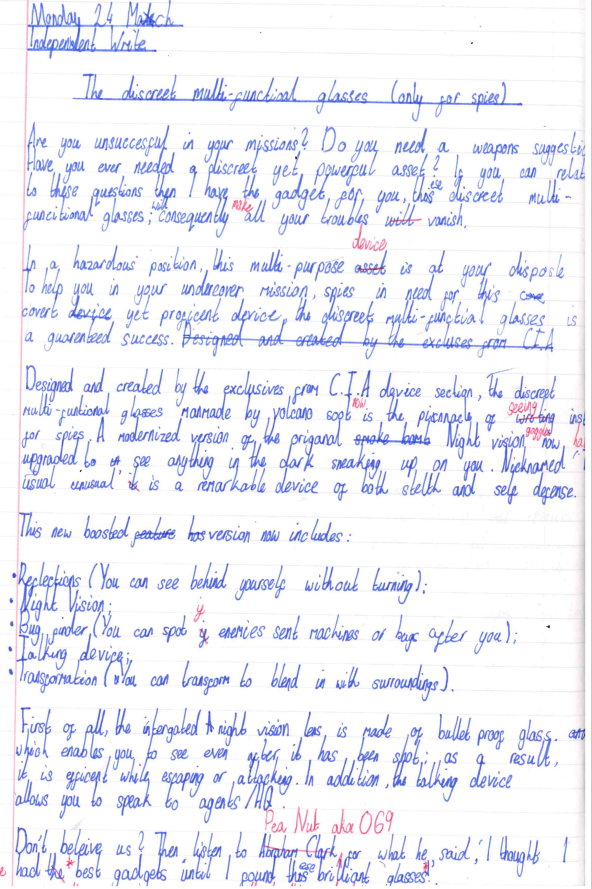 Monday 24 March
Independent Write
The discreet multi-functical glasses (only for spies)
Are you unsuccessful in your missions? Do you need a weapons suggesti
Have you ever needed a discreet yet, powerful asset? If you can relat
to these questions then I have the gadget, for you, these discreet multi-
funcitional glasses; will consequently make all your troubles will vanish.
device
In a hazardous position, this multi-purpose asset is at your disposle
To help you in your undercover mission, spies in need for this cove
covert device yet proficent device, the discreet multi-functial glasses is
a guarenteed success. Designed and created by the excluses from C.I.A
Designed and created by the exclusives from C.I.A device section, the discreet
multi-funtional glasses manmade by volcano soot now is the pijonnacle of writing seeing inst
for spies. A modernized version of the origanal smoke bomb Night vision goggles now ha
upgraded to see anything in the dark sneaking up on you. Nicknamed
usual unusual, is a remarkable device of both stelth and self defense.
This new boosted feature has version now includes:
• Reflections (You can see behind yourself without turning);
• Night Vision;
• Bug finder, (You can spot y enemies sent machines or bugs after you);
• Talking device;
• Transformation (You can transform to blend in with surroundings).
First of all, the intergated night vision lens, is made of bullet proof glass. and
which enables you to see even after it has been shot; as a result,
it, is efficent while escaping or attacking. In addition, the talking device
allows you to speak to agents/HQ.
Pea Nut aka 069
Don't beleive us? Then listen to Abraham Clark, for what he said, 'I thought I
had the * best gadgets until I found these brilliant glasses*'